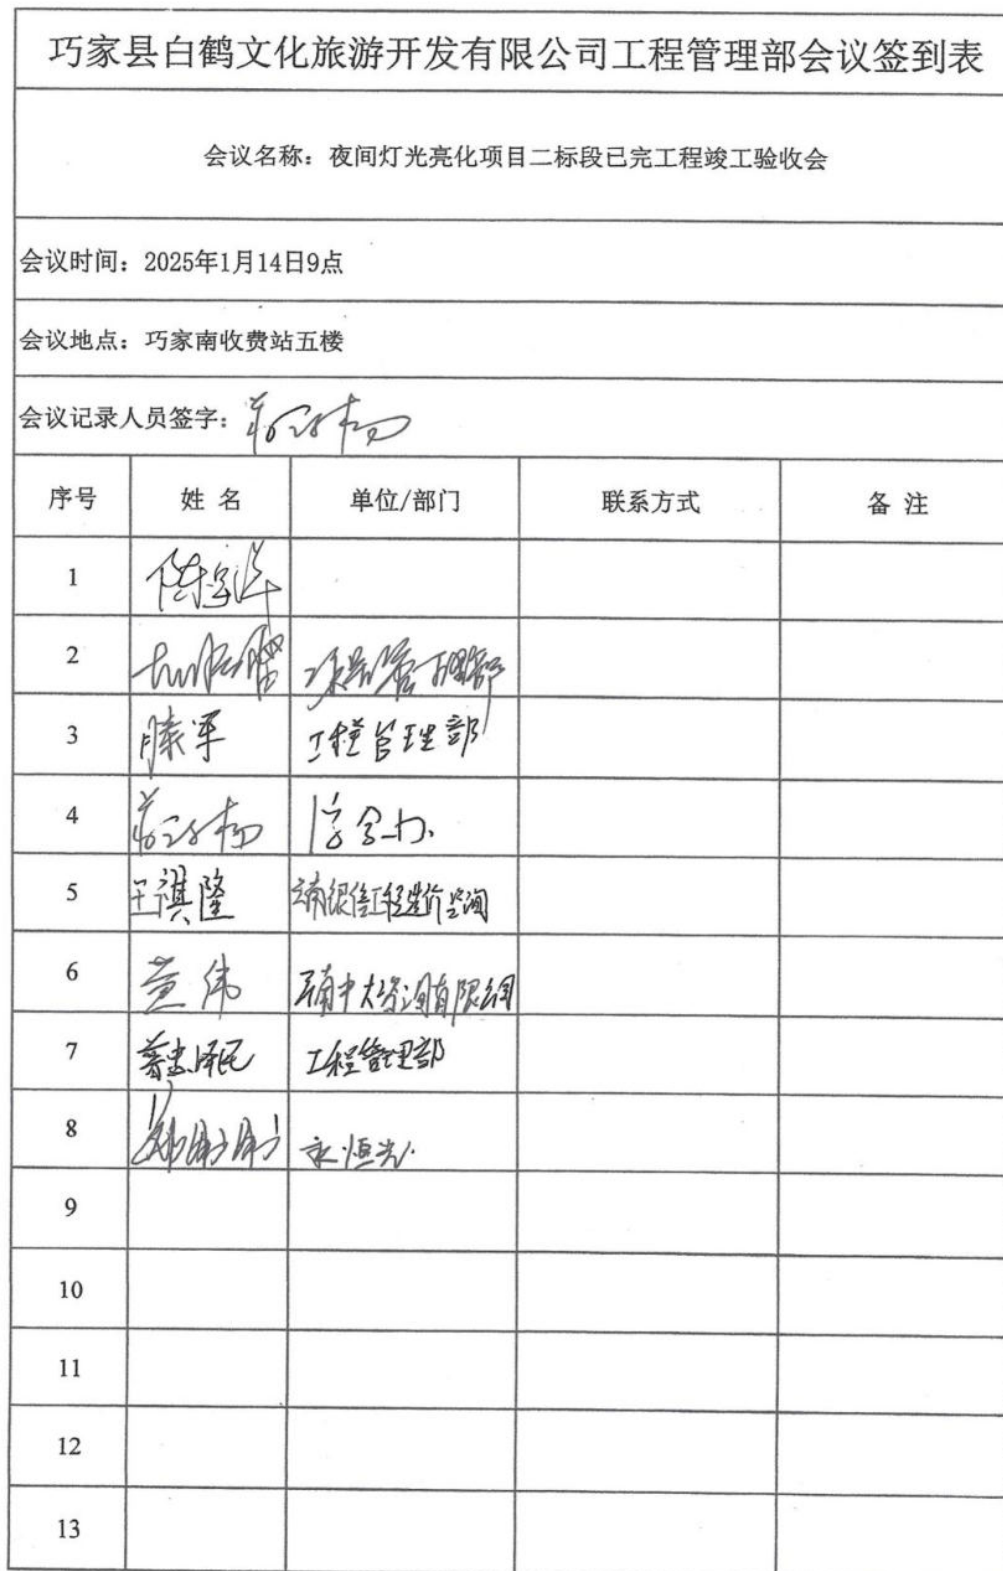 巧家县白鹤文化旅游开发有限公司工程管理部会议签到表
会议名称：夜间灯光亮化项目二标段已完工程竣工验收会
会议时间：2025年1月14日9点
会议地点：巧家南收费站五楼
会议记录人员签字：
序号 姓 名 单位/部门 联系方式 备 注
1
2
3 滕军 工程管理部
4
5 王祺隆 云南银信工程造价咨询
6 黄伟
7 工程管理部
8 永恒光
9
10
11
12
13